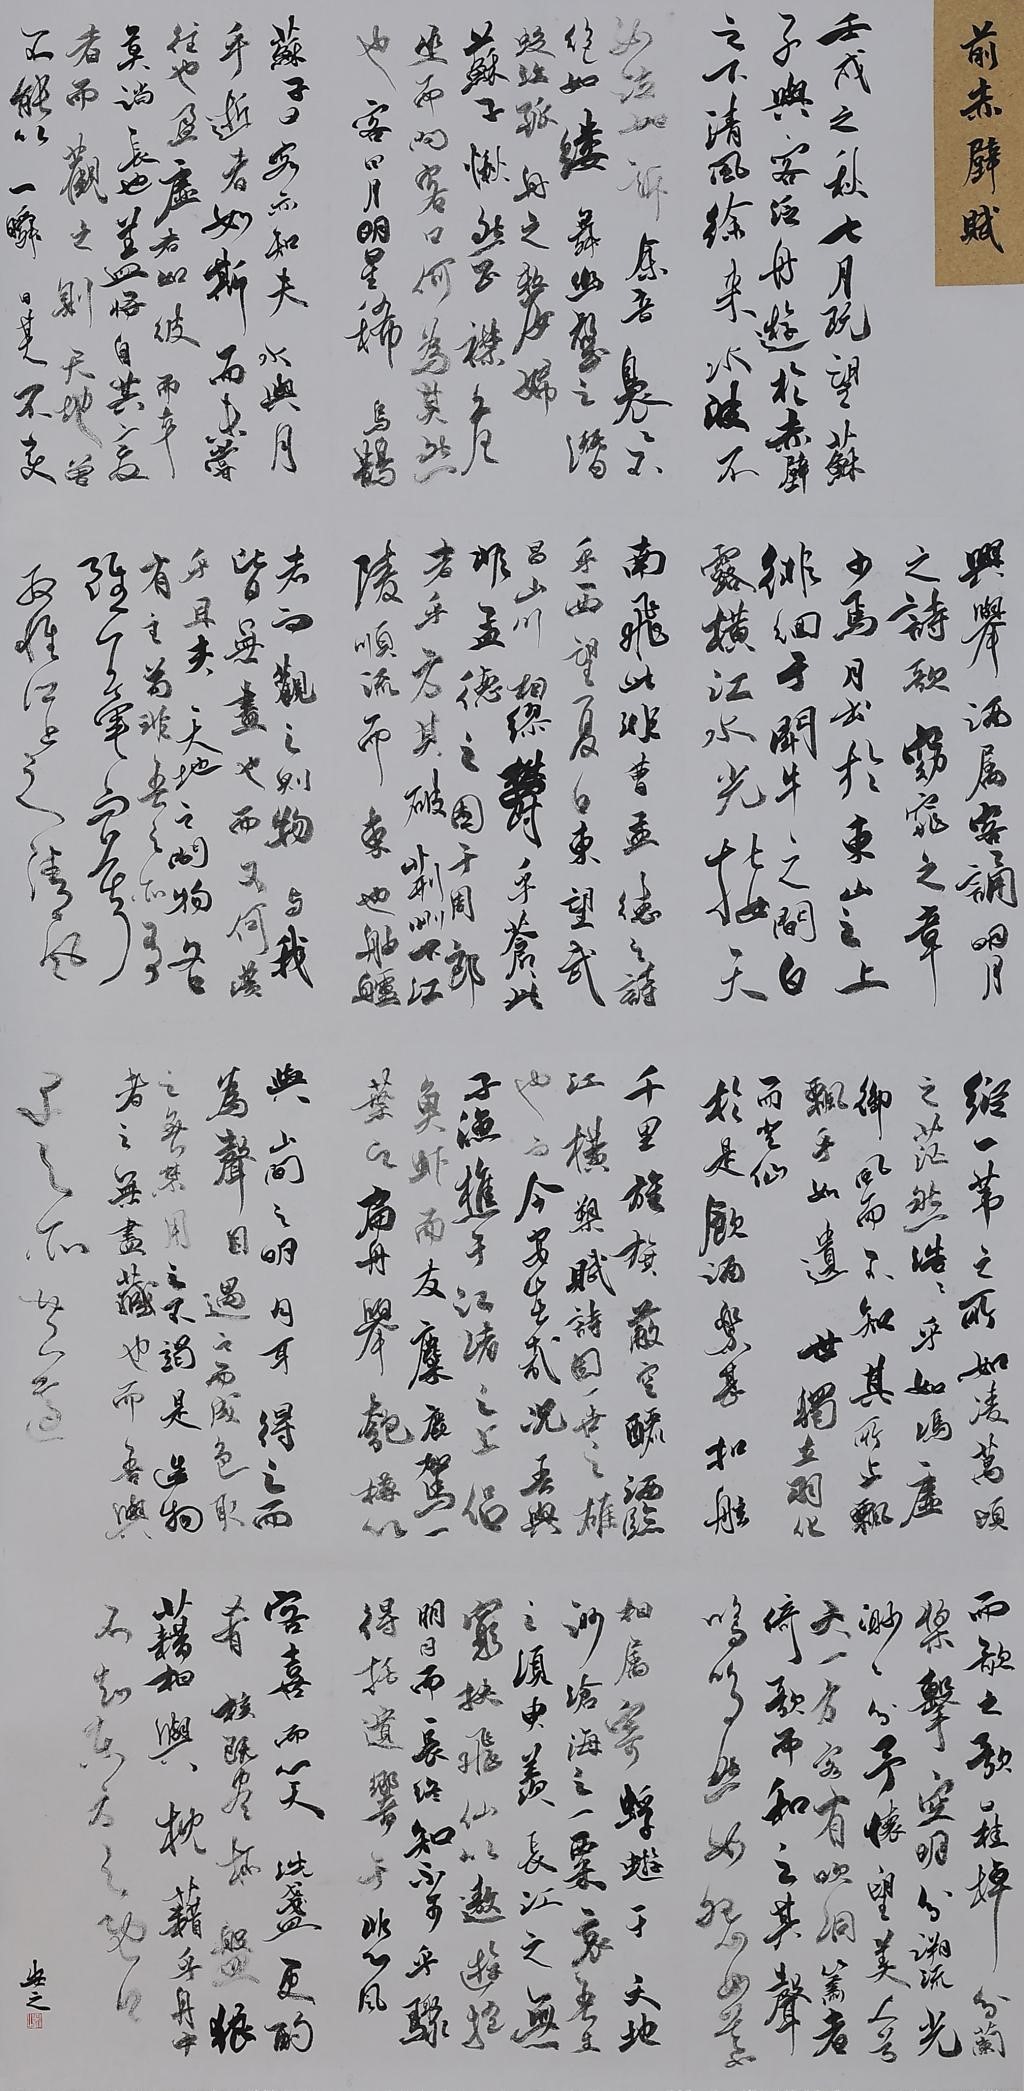 前赤壁賦
壬戌之秋七月既望蘇
子與客泛舟遊於赤壁
之下清風徐来水波不
興舉酒属客誦明月
之詩歌窈窕之章
少焉月出於東山之上
徘徊于鬭牛之間白
露横江水光接天
縱一葦之所如凌萬頃
之茫然浩〻乎如馮虛
御風而不知其所止飄
飄乎如遺世獨立羽化
而登仙
於是飲酒樂甚扣舷
而歌之歌曰桂棹兮蘭
槳擊空明兮溯流光
渺〻兮予懷望美人兮
天一方客有吹洞簫者
倚歌而和之其聲
嗚嗚然如怨如慕
如泣如訴餘音裊〻不
絕如縷舞幽壑之潛
蛟泣孤舟之嫠婦
蘇子愀然正襟危
坐而問客曰何為其然
也客曰月明星稀烏鵲
南飛此非曹孟德之詩
乎西望夏口東望武
昌山川相缪欝乎蒼〻此
非孟德之困于周郎
者乎方其破荆州下江
陵順流而東也舳艫
千里旌旗蔽空釃酒臨
江横槊賦詩固一世之雄
也而今安在哉況吾與
子漁樵于江渚之上侣
魚虾而友麋鹿駕一
葉之扁舟舉匏樽以
相属寄蜉蝣于天地
渺滄海之一粟哀吾生
之須臾羡長江之無
窮挾飛仙以遨遊抱
明月而長终知不可乎驟
得托遺響于悲風
蘇子曰客亦知夫水與月
乎逝者如斯而未嘗
往也盈虚者如彼而卒
莫消長也蓋將自其變
者而觀之則天地曾
不能以一瞬自其不变
者而觀之則物与我
皆無盡也而又何羡
乎且夫天地之間物各
有主苟非吾之所有
雖一毫而莫
取惟江上之清風
與山間之明月耳得之而
為聲目遇之而成色取
之無禁用之不竭是造物
者之無盡藏也而吾與
子之所共適
客喜而笑洗盞更酌
肴核既盡杯盤狼
藉相與枕藉乎舟中
不知東方之既白